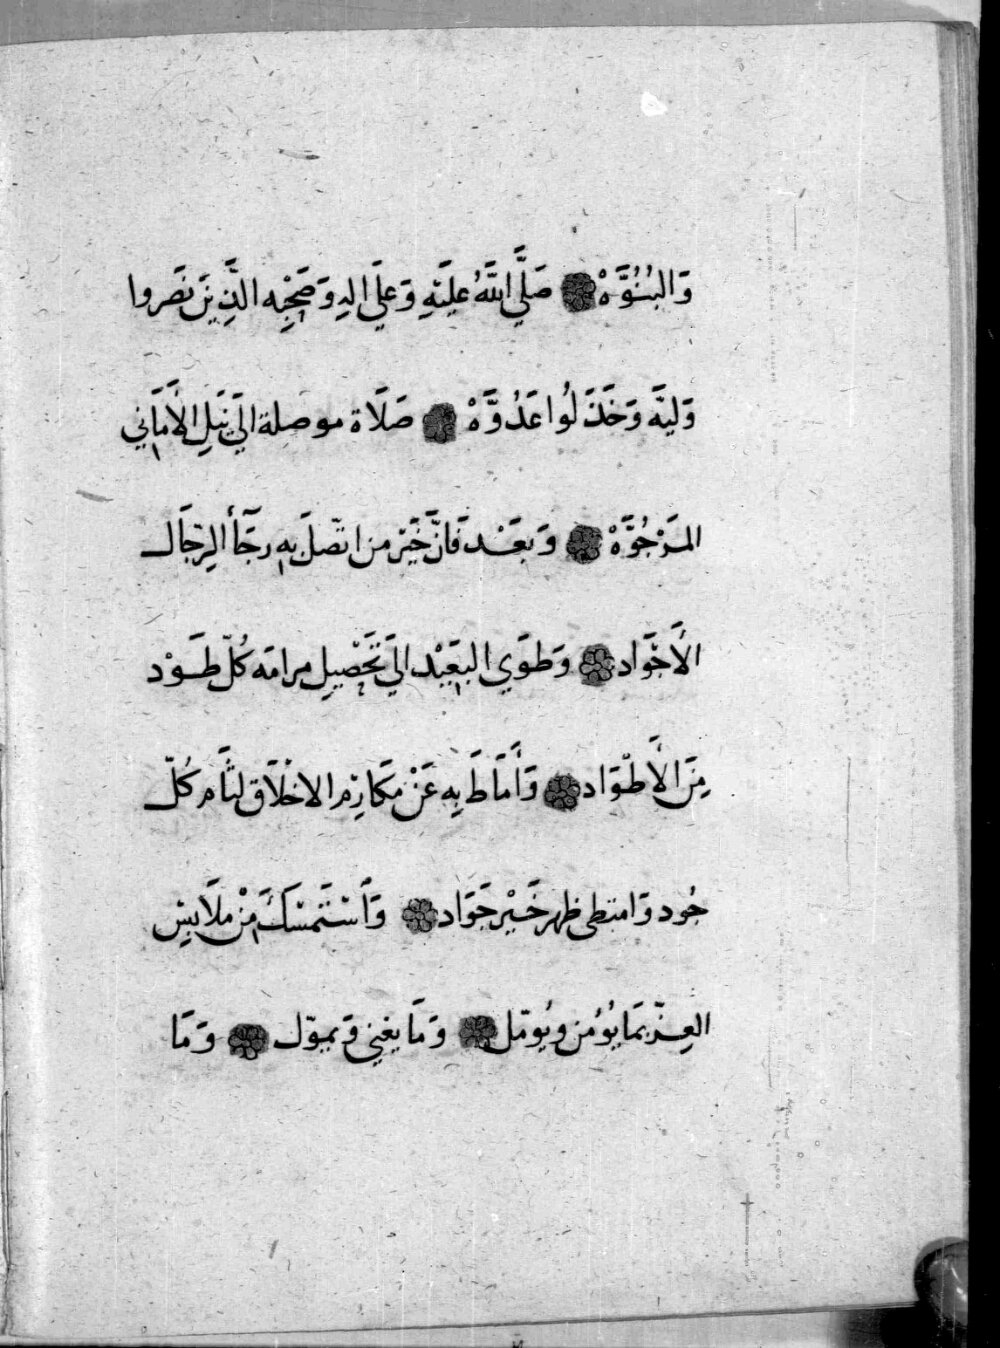 وَالبُنُوَّهْ صَلَّي اللَّهُ عَليَهِ وَعلَي الهِ وَصَحْبِه الذِينَ نَصَروا
وَليَّه وَخَذَلُوا عَدُوَّهْ صَلَاة موصلة الَي نَيلِ الأَمَاني
المَرْجُوَّهْ وَبَعَدْ فَانَّ خَيْر من اتصّلَ بهِ رجَآأ الرِجَال
الأَجْوَاد وَطوَي البَعَيْد الَي تَحْصْيلِ مرامَه كُلّ طَوْد
مِنَ الأَطْوَاد وَأَمَاطَ بِه عَنْ مَكَارِم الاخْلَاق لثَام كُلّ
جُود وَامتطى ظهر خَيْر جَوَاد وَاَسْتَمسَكَ مِنْ ملَابسِ
العِزّ بمَا يُوُمن ويُومّل وَمَا يغني وَيموّل وَمَا